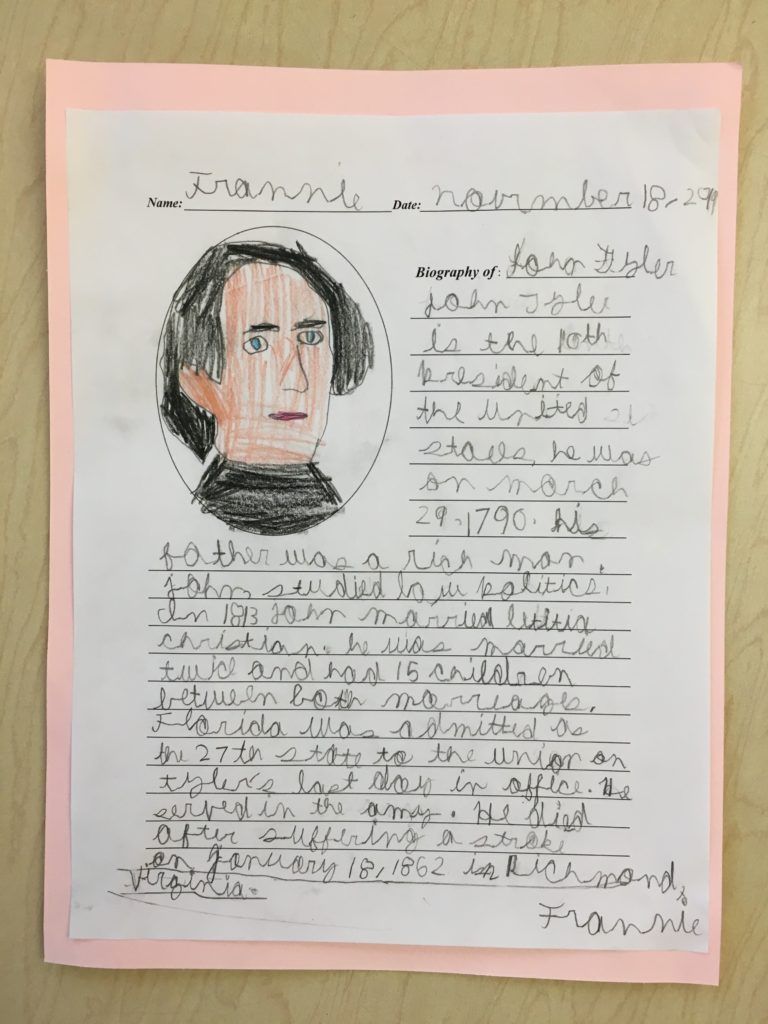 Name: Frannie Date: november 18, 2011
Biography of: John Tyler
John Tyler
is the 10th
president of
the united
states, he was
on march
29, 1790. his
father was a rich man.
John studied law politics.
In 1813 John married letitia
christian. he was married
twice and had 15 children
between both marriages.
Florida was admitted as
the 27th state to the union on
tyler's last day in office. He
served in the army. He died
after suffering a stroke
on January 18, 1862 in Richmond,
Virginia.
Frannie